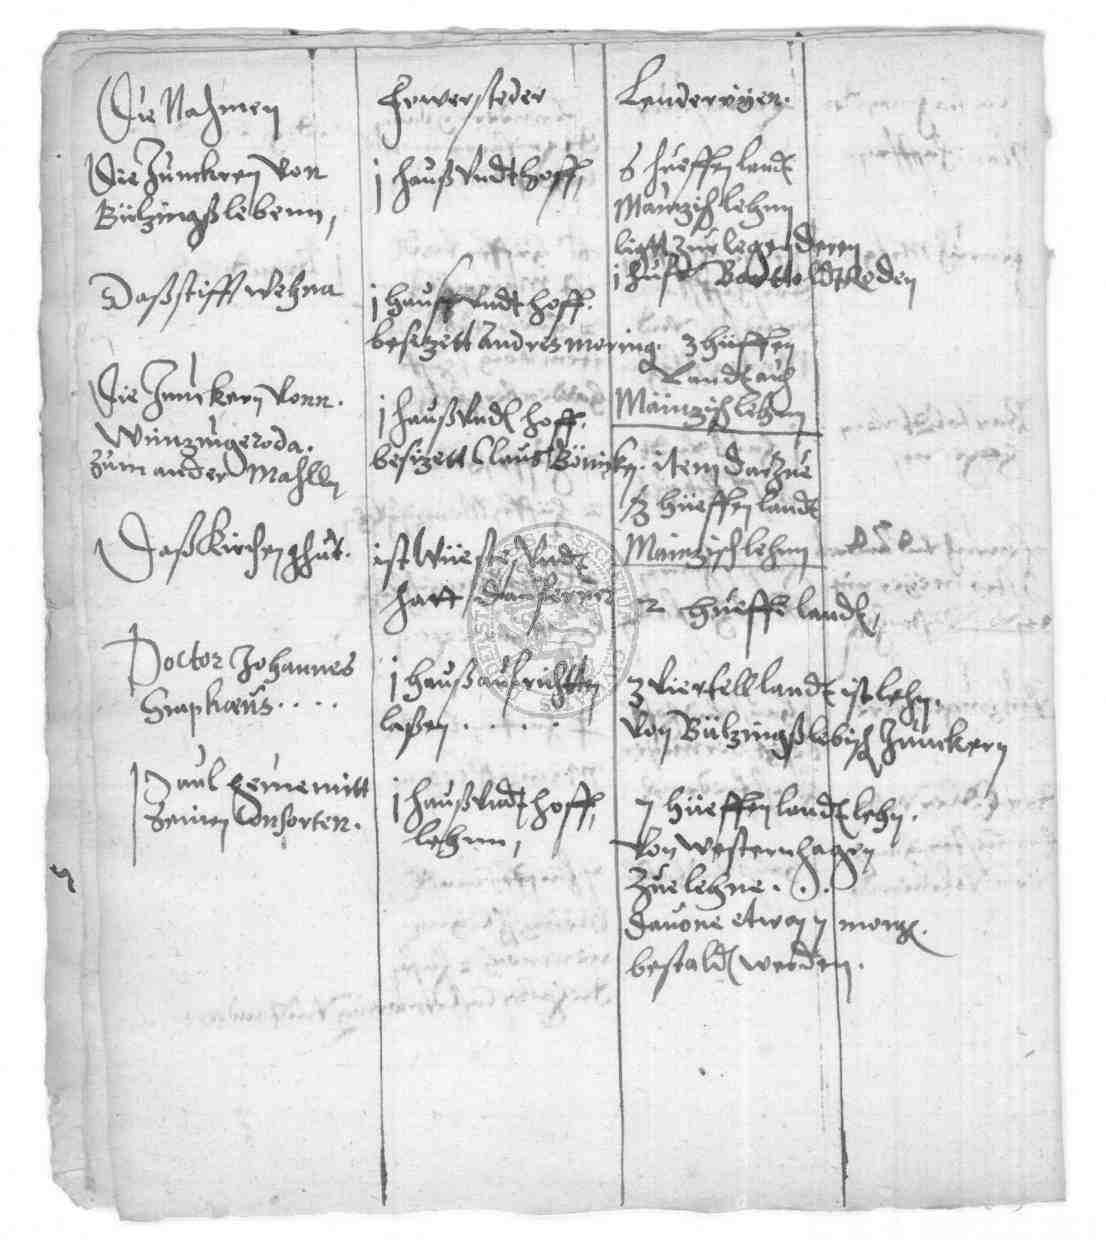 Die Nahmen
Fewersteder
Lendereyen.
Die Junckren Von
Bültzingßlebenn,
j hauß Vndt hoff,
6 hueffen landt
Maintzisch lehnn
ligtt zur
j huffe
Daß stifft
j hauß Vndt hoff.
besitzett Andres moring.
3 hüffen
Landt auch
Maintzisch lehnn
Die Junckern Vonn.
Wüntzingeroda.
zum ander Mahlln
j hauß Vndt hoff.
besitzett Claus
item darzue
3 hüeffen landt
Maintzisch lehnn
Daß Kirchen ghut.
ist Wüeste Vndt
hatt
2 hueffe landt,
Doctor Johannes
j hauß aufrichtten
laßen . . . . .
3 Viertell landt ist lehn.
Von Bültzingßlebisch Junckern
Paul mitt
Seinen Consorten.
j hauß Vndt hoff,
lehnn,
7 hüeffen landt lehn.
Von Westernhagen
Zue lehne . . .
dauone etwan 7 morg.
bestaldt werden.